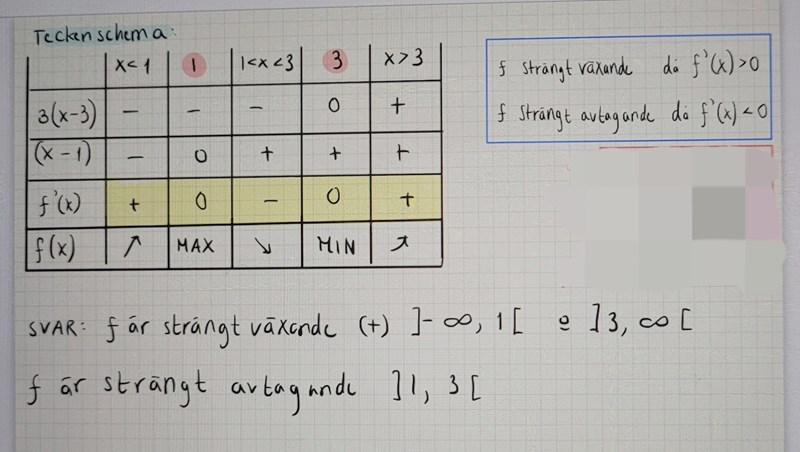 Teckenschema:
x<1 1 1<x<3 3 x>3
3(x-3) - - - 0 +
(x-1) - 0 + + +
f'(x) + 0 - 0 +
f(x) ↗ MAX ↘ MIN ↗
f strängt växande då f'(x)>0
f strängt avtagande då f'(x)<0
SVAR: f är strängt växande (+) ]-∞, 1[ e ]3, ∞[
f är strängt avtagande ]1, 3[